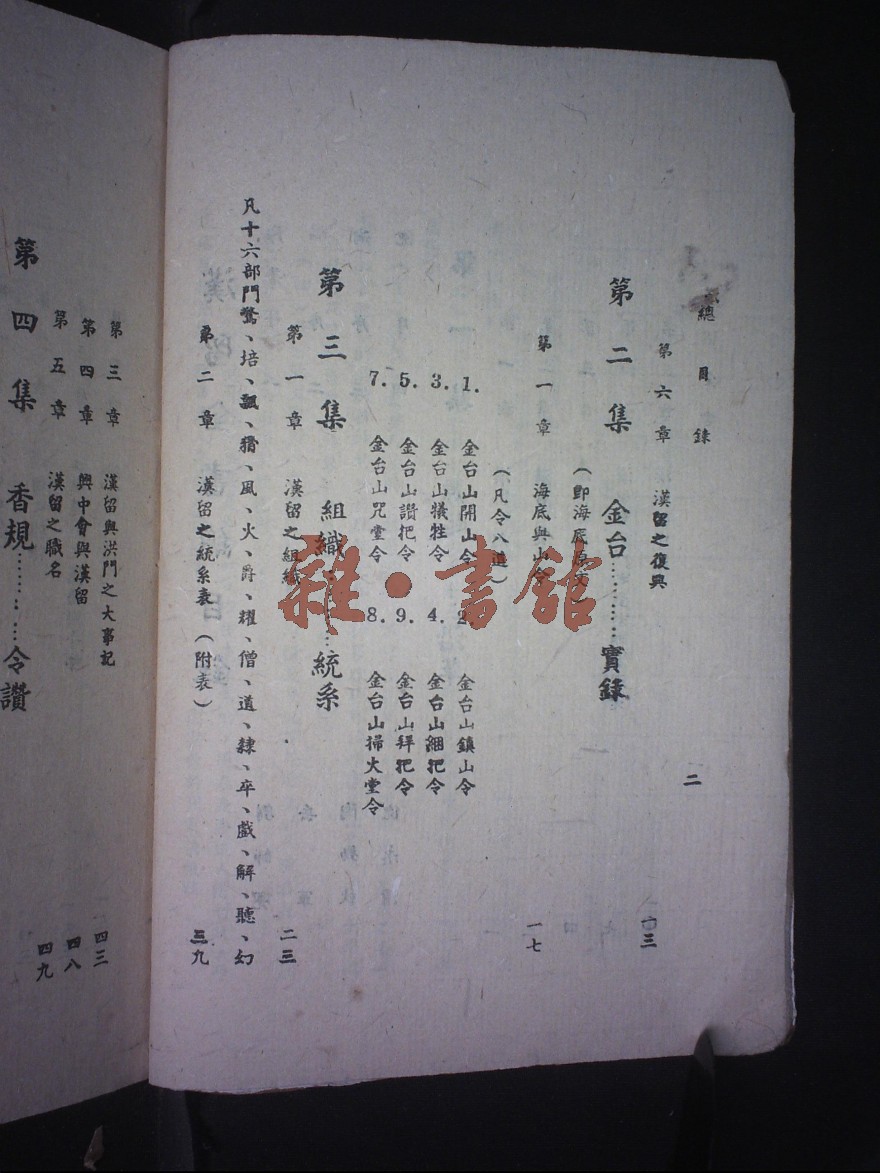 總目錄
二
第六章 漢留之復興 一三
第二集 金台………實錄
（即海底原文）
第一章 海底與山令 一七
（凡令八道）
1. 金台山開山令 2. 金台山鎮山令
3. 金台山犧牲令 4. 金台山細把令
5. 金台山讚把令 9. 金台山拜把令
7. 金台山咒堂令 8. 金台山掃大堂令
第三集 組織………統系
第一章 漢留之組織 二三
凡十六部門驚、培、飄、猾、風、火、爵、耀、僧、道、隸、卒、戲、解、聽、幻
第二章 漢留之統系表（附表） 三九
第三章 漢留與洪門之大事記 四三
第四章 興中會與漢留 四八
第五章 漢留之職名 四九
第四集 香規………令讚
雜·書館